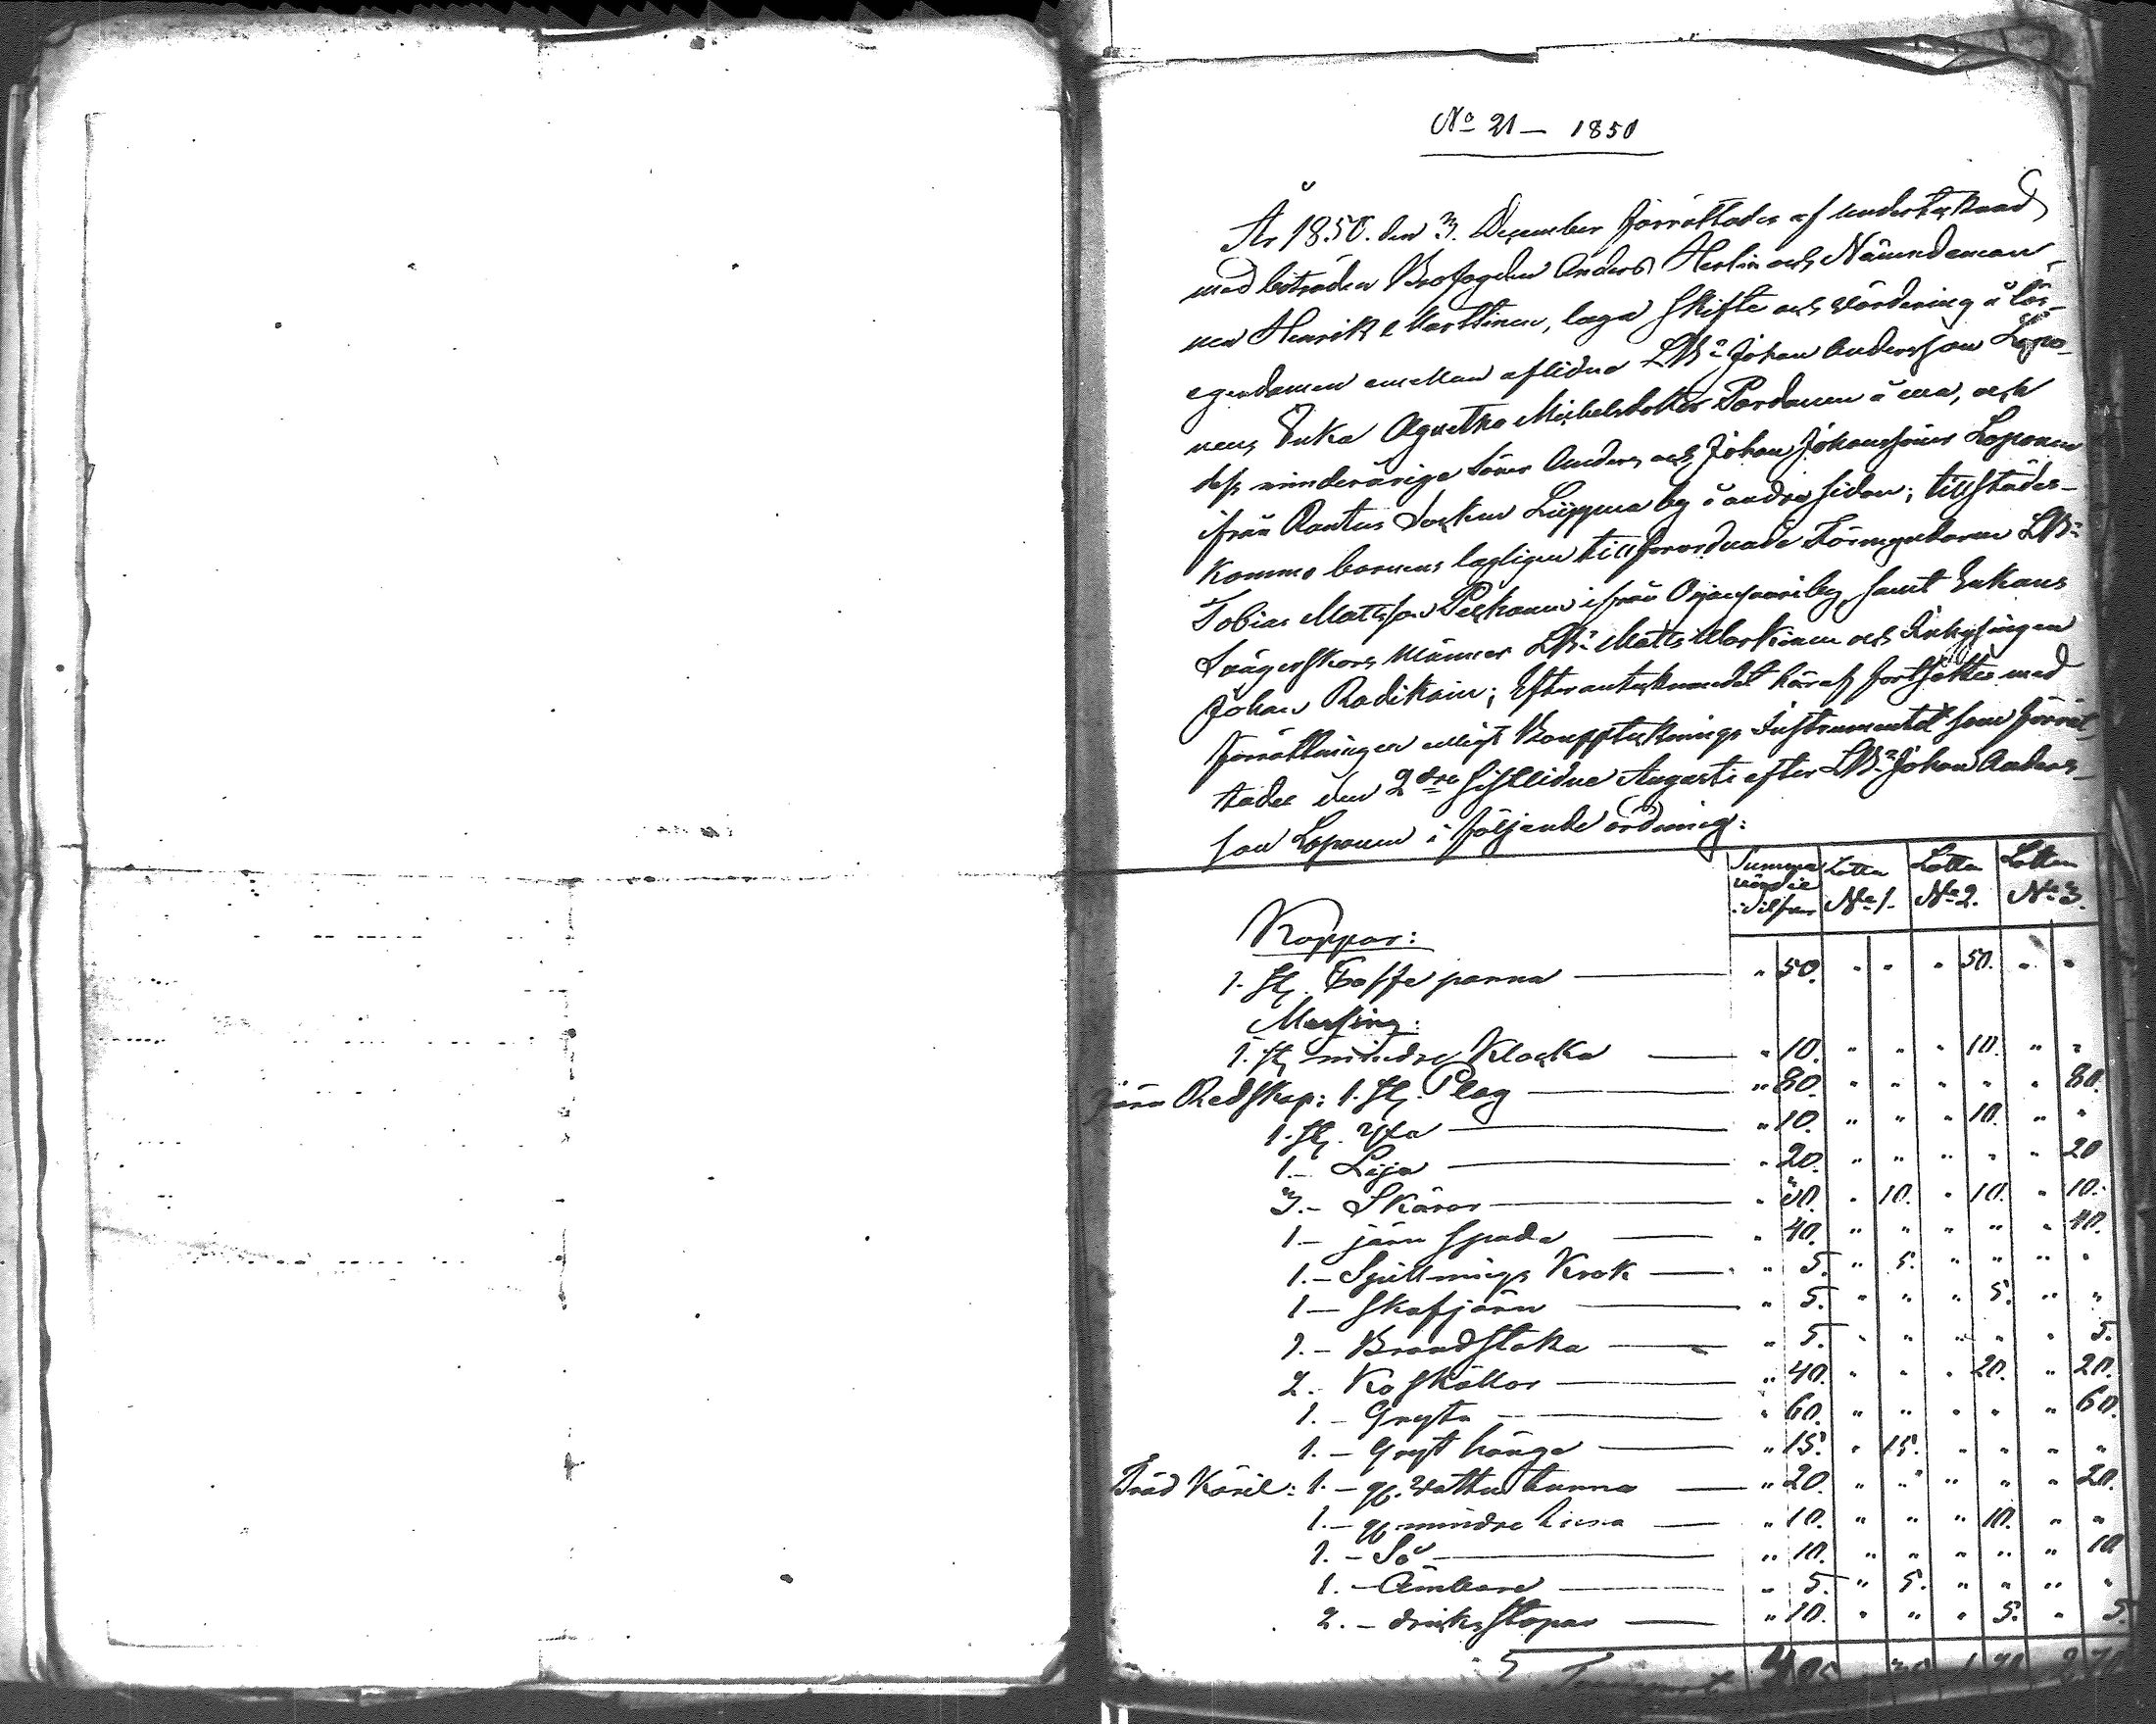 No 21 — 1850
År 1850. den 3. December förrättades af undertecknad
med biträden Brofogden Anders Herlin och Nämndeman-
nen Henrik Marttinen, laga skifte och värdering å lös-
egendomen emellan aflidne LB:n Johan Andersson Lopo-
nens Enka Agnetha Michelsdotter Pardanen å ena, och
dess minderårige Söner Anders och Johan Johanssöner Loponen
ifrån Rantus Socken Liippua by å andra sidan; tillstädes-
kommo barnens lagligen tillförordnade Förmyndaren LB:n
Tobias Mattsson ifrån by, samt Enkans
Svägerskors Männer LB:n Matts och Inhysingen
Johan Radikain; Efter antecknandet häraf fortsattes med
förrättningen enligt Boupptecknings Instrumentet som förrät-
tades den 2dra sistlidne Augusti efter LB:n Johan Anders-
son Loponen i följande ordning:
Summa värde i Silfver | Lotten No 1. | Lotten No 2. | Lotten No 3.
Koppar:
1. st. Caffe panna — " 50. " " " 50. " "
Messing:
1. st. mindre Klocka — " 10. " " " 10. " "
järn Redskap: 1. st. Plog — " 80. " " " " " 80.
1. st. Yxa — " 10. " " " 10. " "
1. — Lija — " 20. " " " " " 20
3. — Skäror — " 30. " 10. " 10. " 10.
1 — järn spada — " 40. " " " " " 40.
1. — Krok — " 5. " 5. " " " "
1 — skafjärn — " 5. " " " 5. " "
1. — Brandstaka — " 5. " " " " " 5.
2. Ko skällor — " 40. " " " 20. " 20.
1. — Gryta — " 60. " " " " " 60.
1. — Gryt hänge — " 15. " 15. " " " "
Träd Käril: 1. — gl. vattu tunna — " 20. " " " " " 20.
1. — gl. mindre — " 10. " " " 10. " "
1. — Så — " 10. " " " " " 10
1. — Ämbare — " 5. " 5. " " " "
2. — dricks stopar — " 10. " " " 5. " 5.